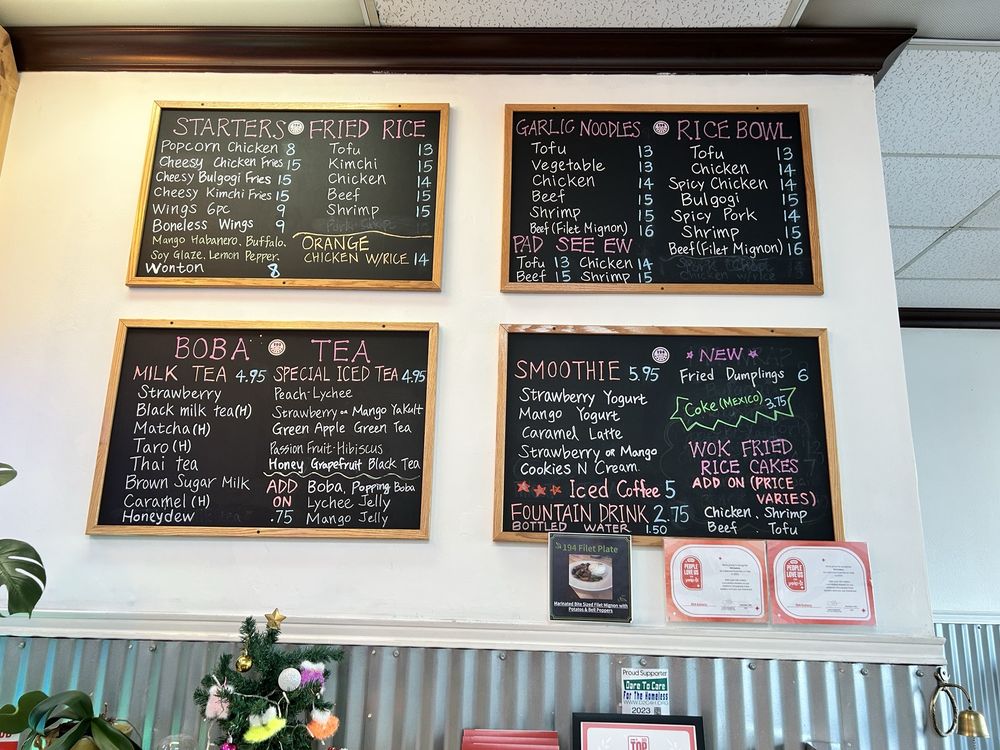 STARTERS FRIED RICE
Popcorn Chicken 8
Cheesy Chicken Fries 15
Cheesy Bulgogi Fries 15
Cheesy Kimchi Fries 15
Wings 6pc 9
Boneless Wings 9
Mango Habanero. Buffalo.
Soy Glaze. Lemon Pepper.
Wonton 8
Tofu 13
Kimchi 15
Chicken 14
Beef 15
Shrimp 15
ORANGE
CHICKEN W/RICE 14
GARLIC NOODLES
Tofu 13
Vegetable 13
Chicken 14
Beef 15
Shrimp 15
Beef (Filet Mignon) 16
PAD SEE EW
Tofu 13 Chicken 14
Beef 15 Shrimp 15
RICE BOWL
Tofu 13
Chicken 14
Spicy Chicken 14
Bulgogi 15
Spicy Pork 14
Shrimp 15
Beef (Filet Mignon) 16
BOBA TEA
MILK TEA 4.95
Strawberry
Black milk tea (H)
Matcha (H)
Taro (H)
Thai tea
Brown Sugar Milk
Caramel (H)
Honeydew
SPECIAL ICED TEA 4.95
Peach-Lychee
Strawberry or Mango Yakult
Green Apple Green Tea
Passion Fruit-Hibiscus
Honey Grapefruit Black Tea
ADD ON .75
Boba, Popping Boba
Lychee Jelly
Mango Jelly
SMOOTHIE 5.95
Strawberry Yogurt
Mango Yogurt
Caramel Latte
Strawberry or Mango
Cookies N Cream
Iced Coffee 5
FOUNTAIN DRINK 2.75
BOTTLED WATER 1.50
NEW
Fried Dumplings 6
Coke (MEXICO) 3.75
WOK FRIED
RICE CAKES
ADD ON (PRICE
VARIES)
Chicken. Shrimp
Beef. Tofu
194 Filet Plate
Marinated Bite Sized Filet Mignon with
Potatos & Bell Peppers
PEOPLE
LOVE US
PEOPLE
LOVE US
Proud Supporter
Dare To Care
For The Homeless
2023
TOP